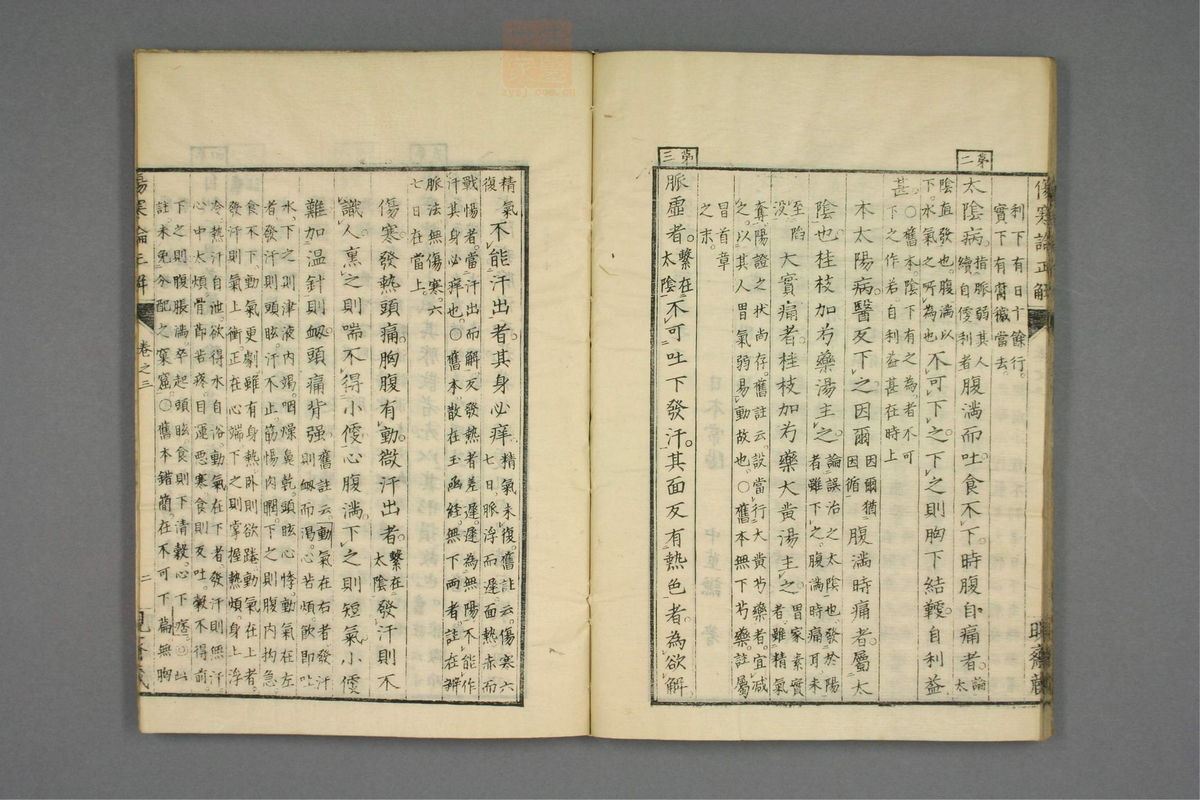 傷寒論正解
利下有日十餘行
實下有腐穢當去
第二
太陰病指脈弱其人續自便利者腹滿而吐食不下時腹自痛者論太
陰直發也腹滿以下水氣之所為也不可下之下之則胸下結鞕自利益
甚○舊本陰下有之為者不可下之作若自利益甚在時上
本太陽病醫反下之因爾因爾猶因循腹滿時痛者屬太
陰也桂枝加芍藥湯主之論誤治之太陰也發於陽者雖下之腹滿時痛耳未
至陷沒大實痛者桂枝加芍藥大黃湯主之胃家素實者雖精氣
奪陽證之狀尚存舊註云設當行大黃芍藥者宜減
之以其人胃氣弱易動故也○舊本無下芍藥註屬
冒首章之末
第三
脈虛者繫在太陰不可吐下發汗其面反有熱色者為欲解
精氣復不能汗出者其身必痒精氣未復舊註云傷寒六七日脈浮而遲面熱赤而
戰惕者當汗出而解反發熱者差遲遲為無陽不能作
汗其身必痒也○舊本散在玉函經無下兩者註在辨
脈法無傷寒六七日在當上
傷寒發熱頭痛胸腹有動微汗出者繫在太陰發汗則不
識人熏之則喘不得小便心腹滿下之則短氣小便
難加溫針則衄頭痛背强舊註云動氣在右者發汗則衄而渴心苦煩飲即吐
水下之則津液內竭咽燥鼻乾頭眩心悸動氣在左
者發汗則頭眩汗不止筋惕肉瞤下之則腹內拘急
食不下動氣更劇雖有身熱臥則欲踡動氣在上者
發汗則氣上衝正在心端下之則掌握熱煩身上浮
冷熱汗自泄欲得水自浴動氣在下者發汗則無汗
心中大煩骨節苦疼目運惡寒食則反吐穀不得前
下之則腹脹滿卒起頭眩食則下清穀心下痞
註未免分配之窠窟○舊本錯簡在不可下篇無胸
卷之三
二